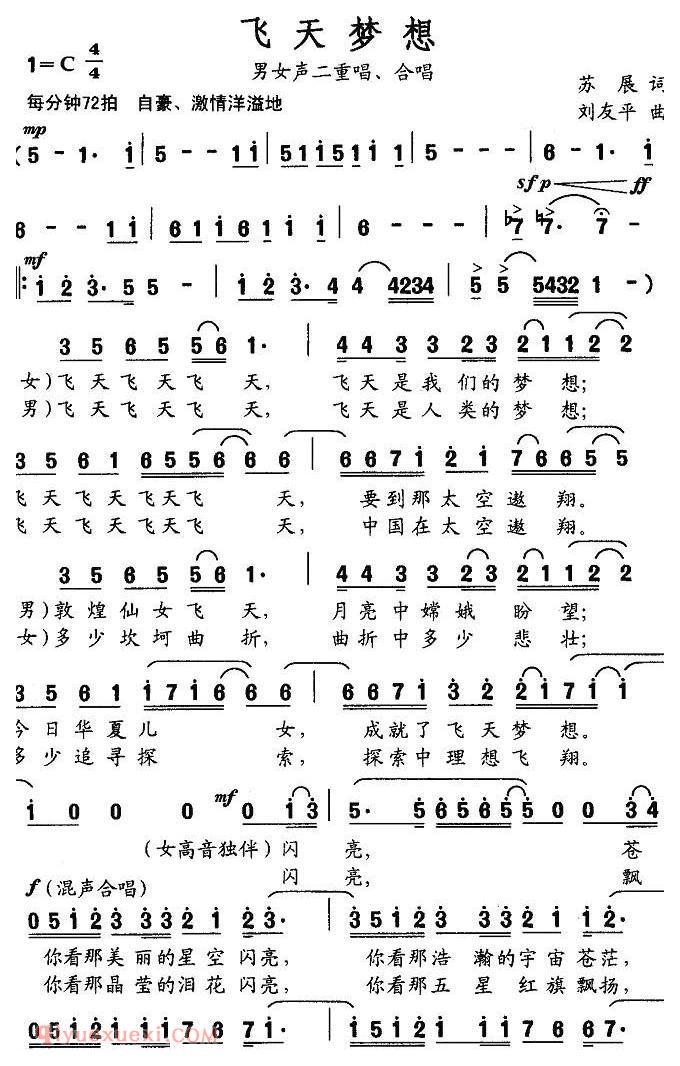 飞天梦想
1=C 4/4
男女声二重唱、合唱
苏 展 词
每分钟72拍 自豪、激情洋溢地
刘友平 曲
mp
( 5 - 1· 1 | 5 - - 1 1 | 5 1 1 5 1 5 1 1 1 | 5 - - - | 6 - 1· 1
sfp ff
6 - - 1 1 | 6 1 1 6 1 6 1 1 1 | 6 - - - | ♭7 ♮7· 7 -
mf
‖: 1 2 3· 5 5 - | 1 2 3· 4 4 4234 | 5 5 5432 1 - )
3 5 6 5 5 6 1· | 4 4 3 3 2 3 2 1 1 2 2
女)飞天飞天飞 天, 飞天是我们的梦 想;
男)飞天飞天飞 天, 飞天是人类的梦 想;
3 5 6 1 6 5 5 6 6 6 | 6 6 7 1 2 1 7 6 6 5 5
飞天飞天飞天飞 天, 要到那太空遨 翔。
飞天飞天飞天飞 天, 中国在太空遨 翔。
3 5 6 5 5 6 1· | 4 4 3 3 2 3 2 1 1 2 2
男)敦煌仙女飞 天, 月亮中嫦娥 盼 望;
女)多少坎坷曲 折, 曲折中多少 悲 壮;
3 5 6 1 1 7 1 6 6 6 | 6 6 7 1 3 2 2 1 7 1 1
今日华夏儿 女, 成就了飞天梦 想。
多少追寻探 索, 探索中理想飞 翔。
mf
1 0 0 0 0 1 3 | 5· 5 6 5 6 5 5 0 0 3 4
(女高音独伴) 闪 亮, 苍
闪 亮, 飘
f (混声合唱)
0 5 1 2 3 3 3 2 1 2 3· | 3 5 1 2 3 3 3 2 1 1 2·
你看那美丽的星空闪亮, 你看那浩瀚的宇宙苍茫,
你看那晶莹的泪花闪亮, 你看那五星红旗飘扬,
0 5 1 2 1 1 1 7 6 7 1· | 1 5 1 2 1 1 1 7 6 6 7·
qiyuexuexi.com